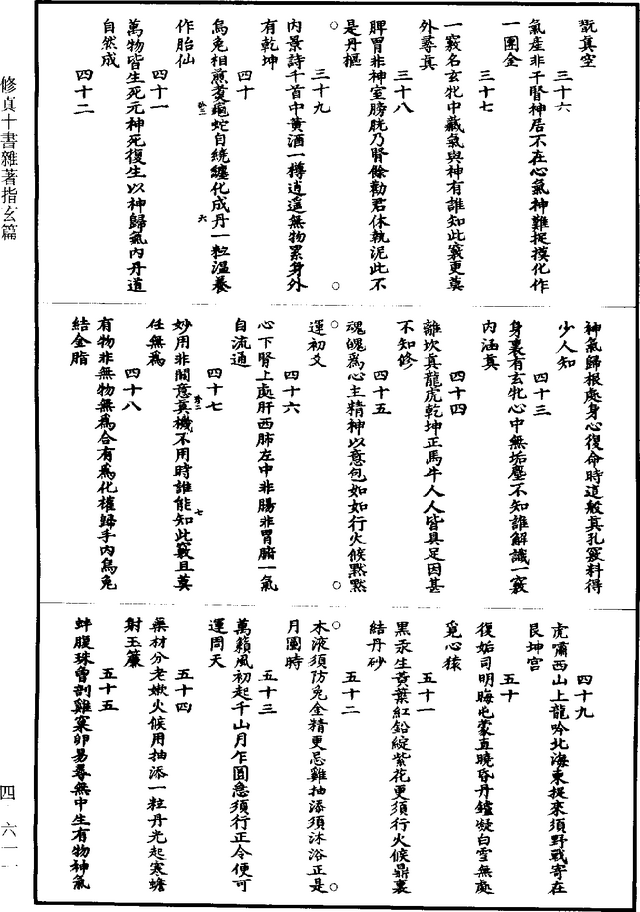 翫真空
三十六
氣産非干腎神居不在心氣神難捉摸化作
一團金
三十七
一竅名玄牝中藏氣與神有誰知此竅更莫
外尋真
三十八
脾胃非神室膀胱乃腎餘勸君休執泥此不
是丹樞
三十九
内景詩千首中黄酒一樽逍遥無物累身外
有乾坤
四十
烏兔相煎煑龜蛇自繞纏化成丹一粒温養
作胎仙
四十一
萬物皆生死元神死復生以神歸氣内丹道
自然成
四十二
神氣歸根處身心復命時這般真孔竅料得
少人知
四十三
身裏有玄牝心中無垢塵不知誰解識一竅
内涵真
四十四
離坎真龍虎乾坤正馬牛人人皆具足因甚
不知修
四十五
魂魄為心主精神以意包如如行火候黙黙
運初爻
四十六
心下腎上處肝西肺左中非腸非胃腑一氣
自流通
四十七
妙用非閒意真機不用時誰能知此竅且莫
任無為
四十八
有物非無物無為合有為化權歸手内烏兔
結金脂
四十九
虎嘯西山上龍吟北海東捉來須野戰寄在
艮坤宫
五十
復姤司明晦屯蒙直曉昏丹爐凝白雪無處
覓心猿
五十一
黑汞生黄葉紅鉛綻紫花更須行火候鼎裏
結丹砂
五十二
木液須防兔金精更忌雞抽添須沐浴正是
月圓時
五十三
萬籟風初起千山月乍圓急須行正令便可
運周天
五十四
藥材分老嫩火候用抽添一粒丹光起寒蟾
射玉簾
五十五
蚌腹珠曾剖雞窠卵易尋無中生有物神氣
修真十書雜著指玄篇
四
六一一